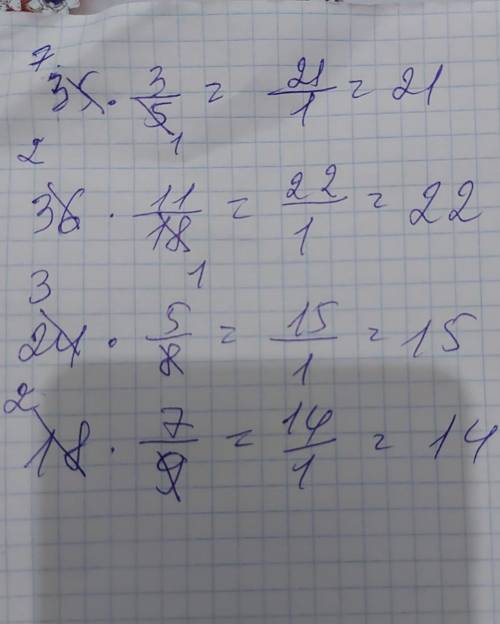 7
35 · 3/5 = 21/1 = 21
1
2
36 · 11/18 = 22/1 = 22
1
3
24 · 5/8 = 15/1 = 15
2
18 · 7/9 = 14/1 = 14